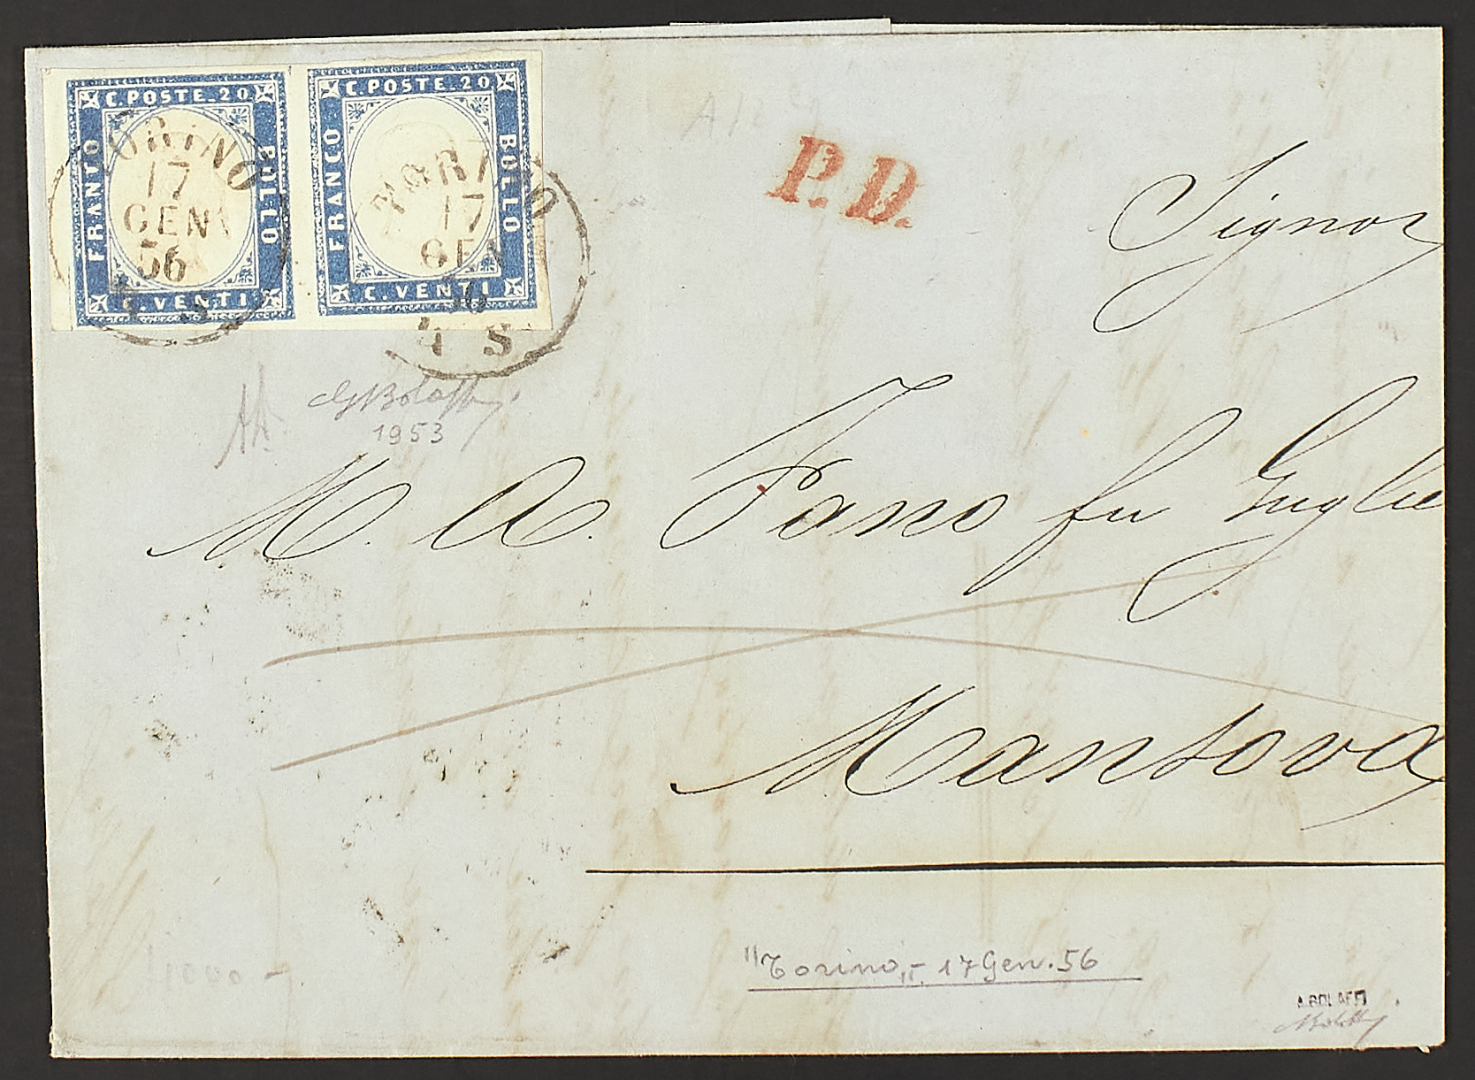 C. POSTE. 20
FRANCO
BOLLO
C. VENTI
C. POSTE. 20
FRANCO
BOLLO
C. VENTI
TORINO
17
GEN
56
4 S
TORINO
17
GEN
56
4 S
P.D.
Signor
G Bolaffi
1953
M. A. Fano fu Guglie
Mantova
"Torino" - 17 Gen. 56
1000 -
A. BOLAFFI
ABolaffi